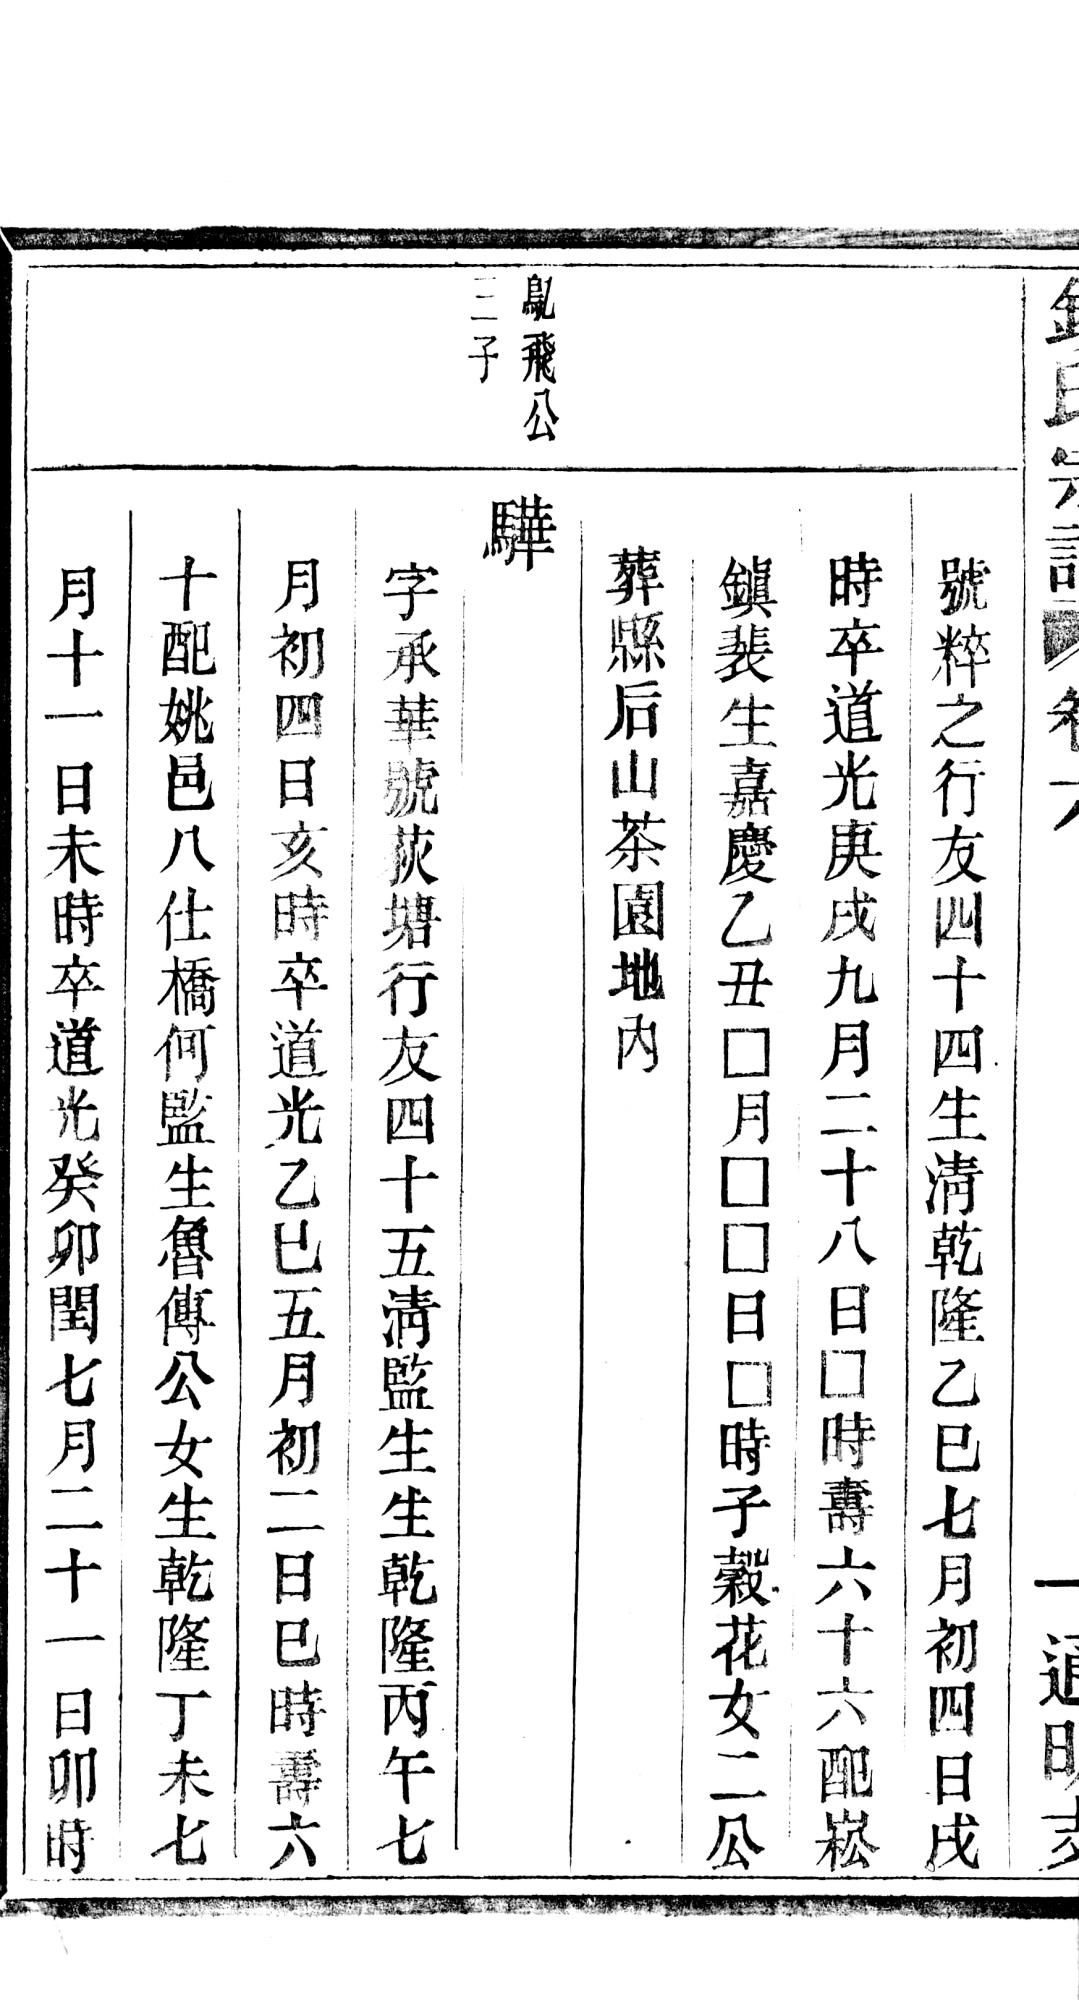 氏宗譜 卷六 一 通明支
號粹之行友四十四生淸乾隆乙巳七月初四日戌
時卒道光庚戌九月二十八日□時壽六十六配崧
鎭裴生嘉慶乙丑□月□□日□時子榖花女二公
葬縣后山茶園地內
飛公
二子
驊
字承華號荻塘行友四十五淸監生生乾隆丙午七
月初四日亥時卒道光乙巳五月初二日巳時壽六
十配姚邑八仕橋何監生魯傳公女生乾隆丁未七
月十一日未時卒道光癸卯閏七月二十一日卯時